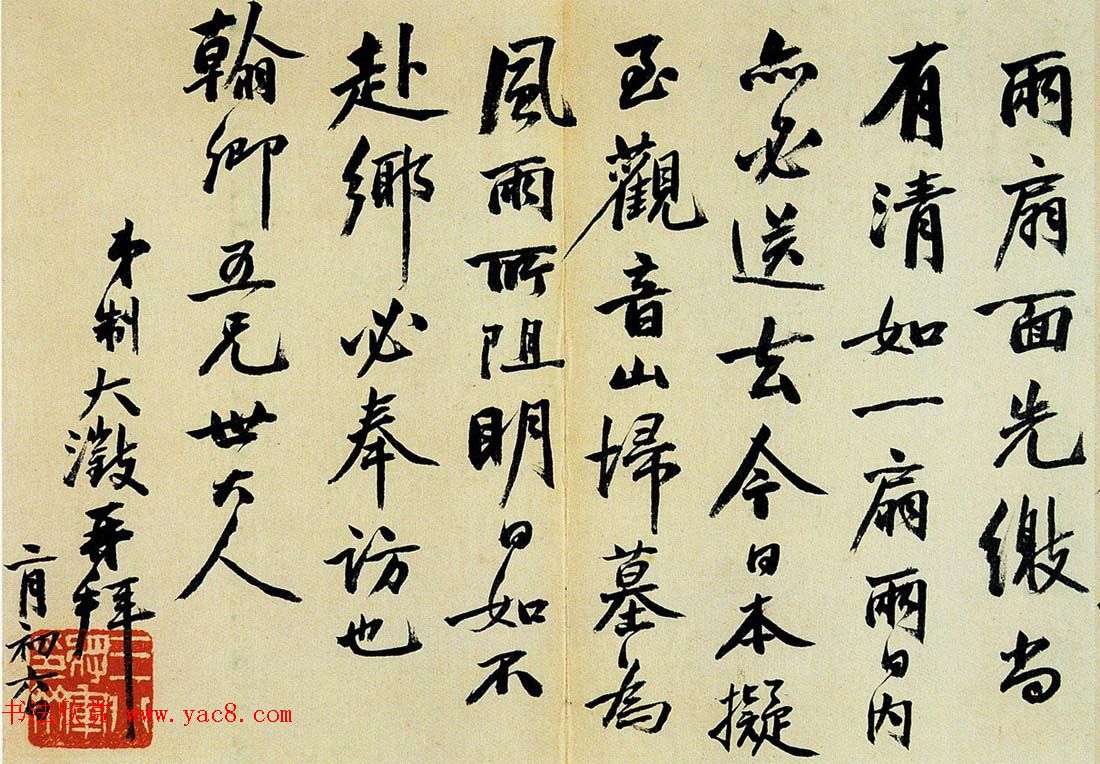 兩扇面先繳尚
有清如一扇兩日內
亦必送去今日本擬
至觀音山埽墓為
風雨所阻明日如不
赴鄉必奉訪也
翰卿五兄世大人
弟制大澂再拜
二月初六日
www.yac8.com